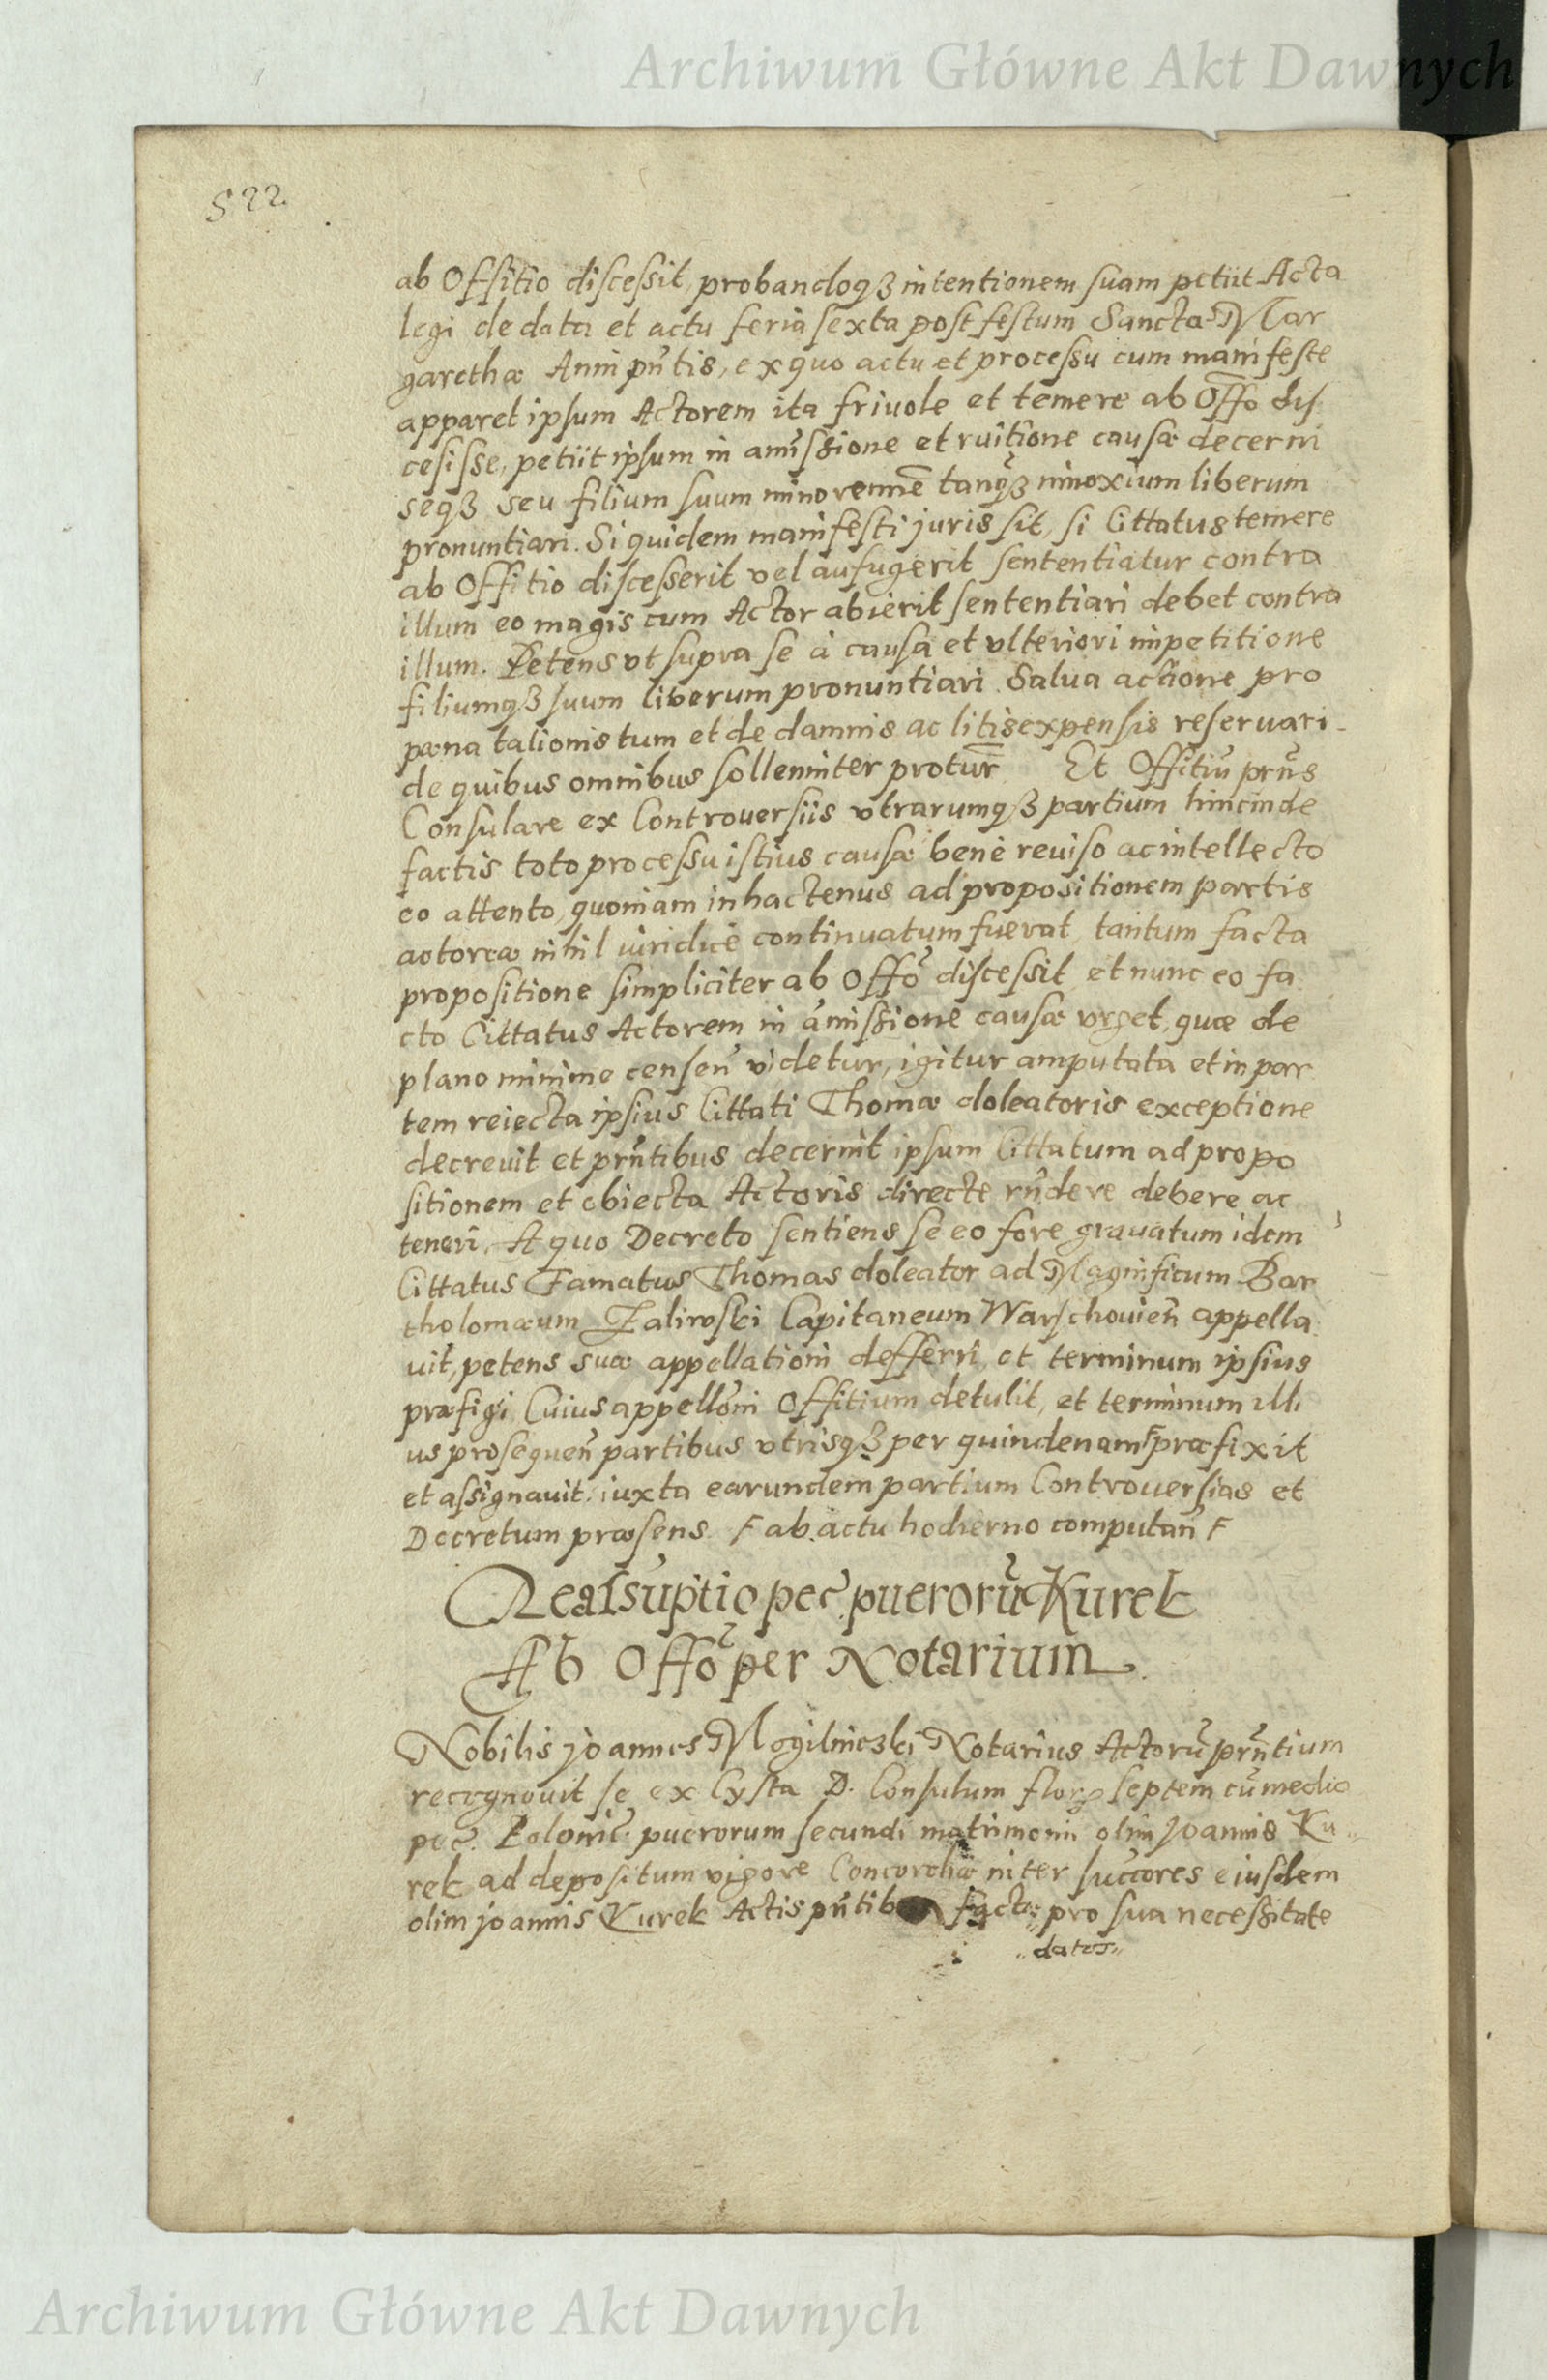 Archiwum Główne Akt Dawnych
522.
ab Offitio discessit, probandoqꝫ intentionem suam petiit Acta
legi de data et actu feria sexta post festum Sanctæ Mar
garethæ Anni pñtis, ex quo actu et processu cum manifeste
apparet ipsum Actorem ita friuole et temere ab Offo dis
cesisse, petiit ipsum in amissione et ruitione causæ decerni
seqꝫ seu filium suum minorennē tanqꝫ innoxium liberum
pronuntiari. Siquidem manifesti juris sit, si Cittatus temere
ab Offitio discesserit vel aufugerit sententiatur contra
illum eo magis cum Actor abierit sententiari debet contra
illum. Petens vt supra se à causa et vlteriori impetitione
filiumqꝫ suum liberum pronuntiari. Salua actione pro
pæna talionis tum et de damnis ac litis expensis reseruari.
de quibus omnibus sollenniter protur̃ Et Offitiũ prñs
Consulare ex Controuersiis vtrarumqꝫ partium hincinde
factis toto processu istius causæ bene reuiso ac intellecto
eo attento, quoniam in hactenus ad propositionem partis
actoreæ nihil iuridice continuatum fuerat, tantum facta
propositione simpliciter ab Offo discessit et nunc eo fa
cto Cittatus Actorem in amissione causæ vrget, quæ de
plano minime censeñ videtur, igitur amputata et in par
tem reiecta ipsius Cittati Thomæ doleatoris exceptione
decrevit et prñtibus decernit ipsum Cittatum ad propo
sitionem et obiecta Actoris directe rñdere debere ac
teneri. A quo Decreto sentiens se eo fore grauatum idem
Cittatus Famatus Thomas doleator ad Magnificum Bar
tholomæum Zaliwski Capitaneum Warschouieñ appella
uit, petens suæ appellationi defferri et terminum ipsius
præfigi Cuius appelloni Offitium detulit, et terminum illi
us prosequeñ partibus vtrisqꝫ per quindenam F præfixit
et assignauit. iuxta earundem partium Controuersias et
Decretum præsens. F ab actu hodierno computañ F
Reassuptio pec̃ puerorũ Kurek
Ab Offo per Notarium
Nobilis Joannes Mogilnicski Notarius Actorũ prñtium
recognouit se ex Cysta D. Consulum flor septem cũ medio
pec̃. Poloniẽ puerorum secundi matrimonii olim Joannis Ku
rek ad depositum vigore Concordiæ inter succores eiusdem
olim Joannis Kurek Actis pñtib factæ pro sua necessitate
datos
Archiwum Główne Akt Dawnych